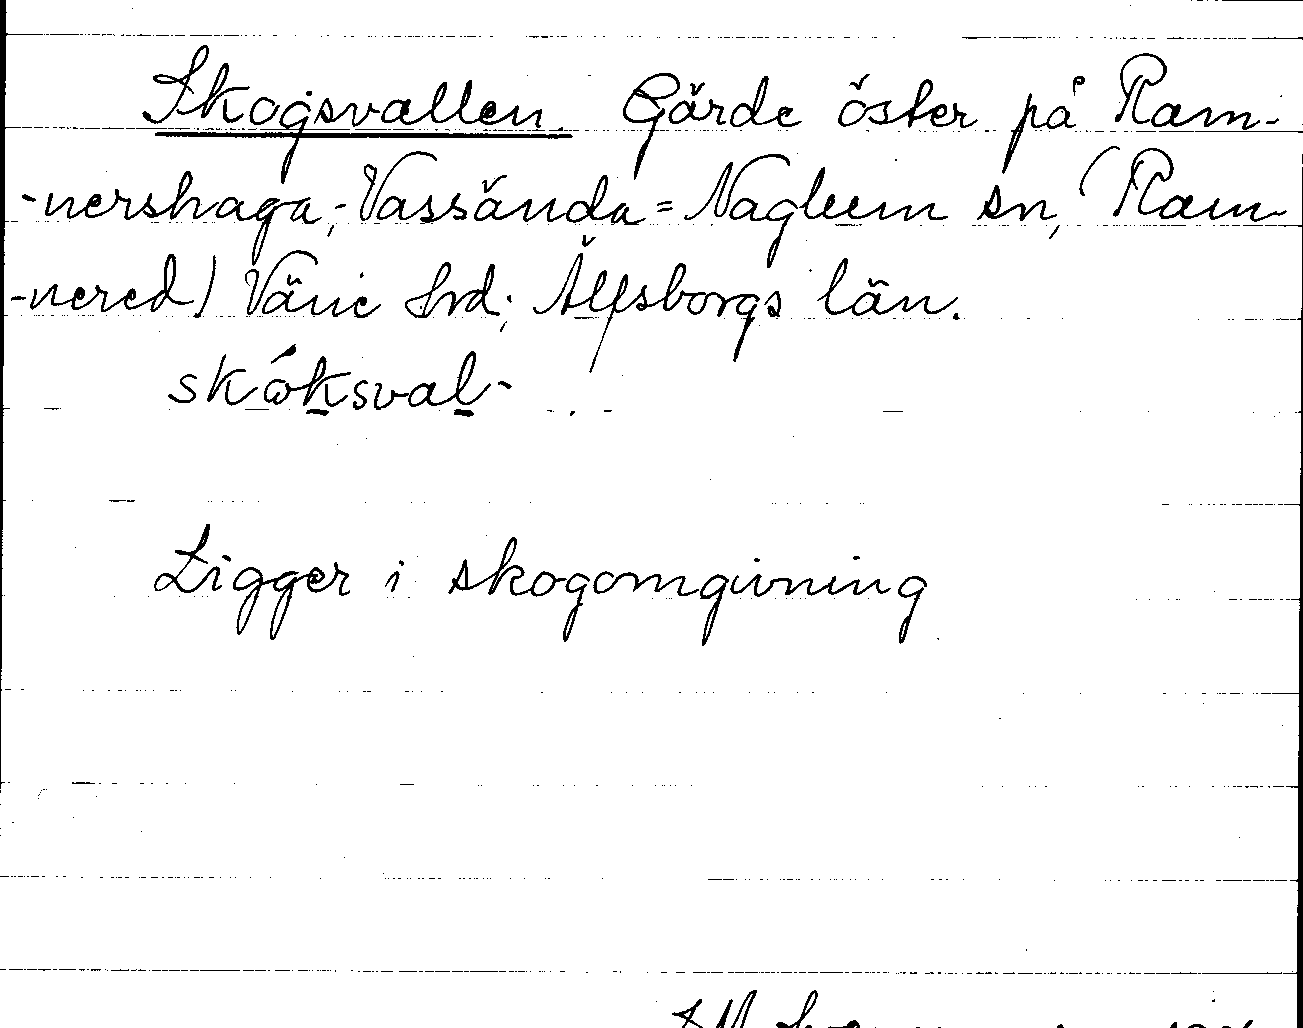 Skogsvallen. Gärde öster på Ram-
-nershaga, Vassända=Naglum sn, (Ram-
-nered) Väne hrd; Älfsborgs län.
skóksval-
Ligger i skogomgivning